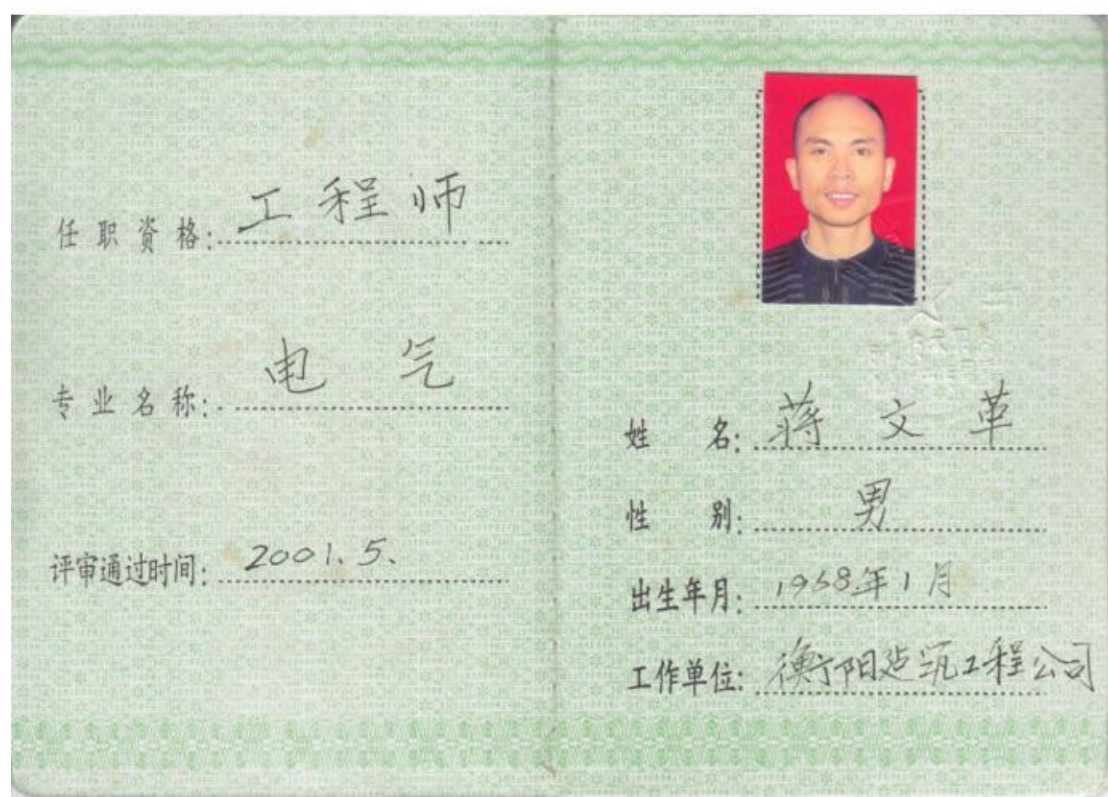 任职资格:工程师
专业名称:电气
评审通过时间:2001.5.
姓名:蒋文革
性别:男
出生年月:1968年1月
工作单位:衡阳建筑工程公司